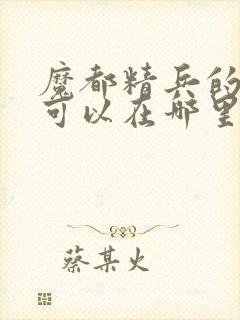 魔都精兵的
可以在哪里
蔡某火